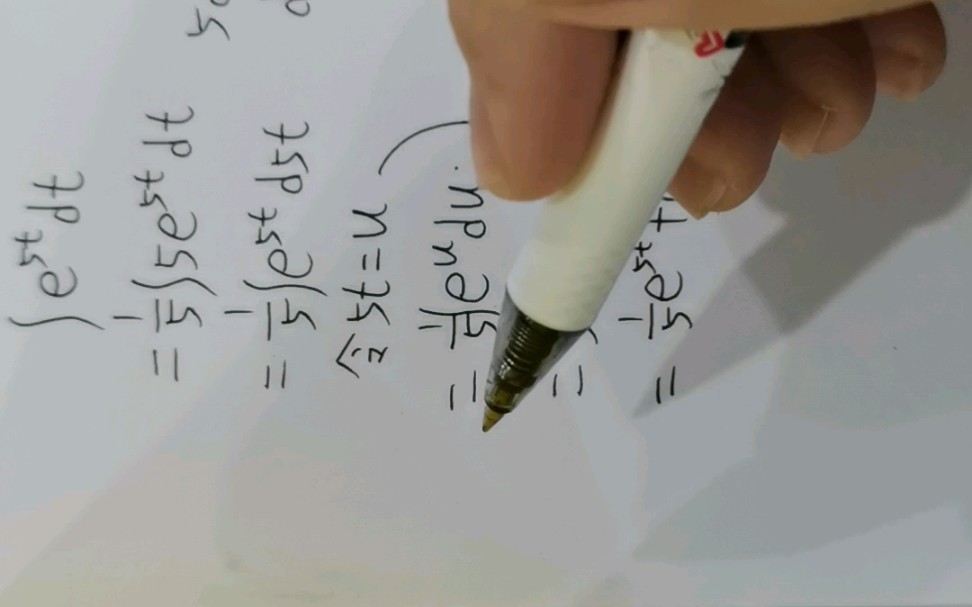 ∫e^{5t}dt
=\frac{1}{5}∫5e^{5t}dt
=\frac{1}{5}∫e^{5t}d5t
令5t=u
=\frac{1}{5}∫e^{u}du
=
=\frac{1}{5}e^{5t}+